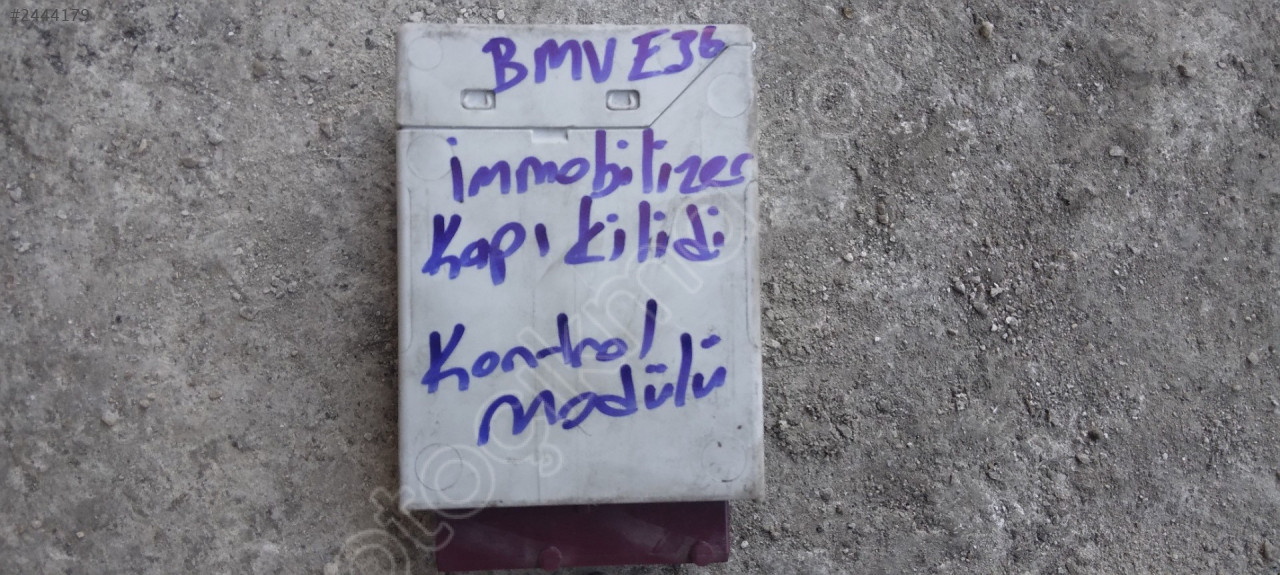 #2444179
BMV E36
immobilizer
Kapı kilidi
Kontrol
Modülü